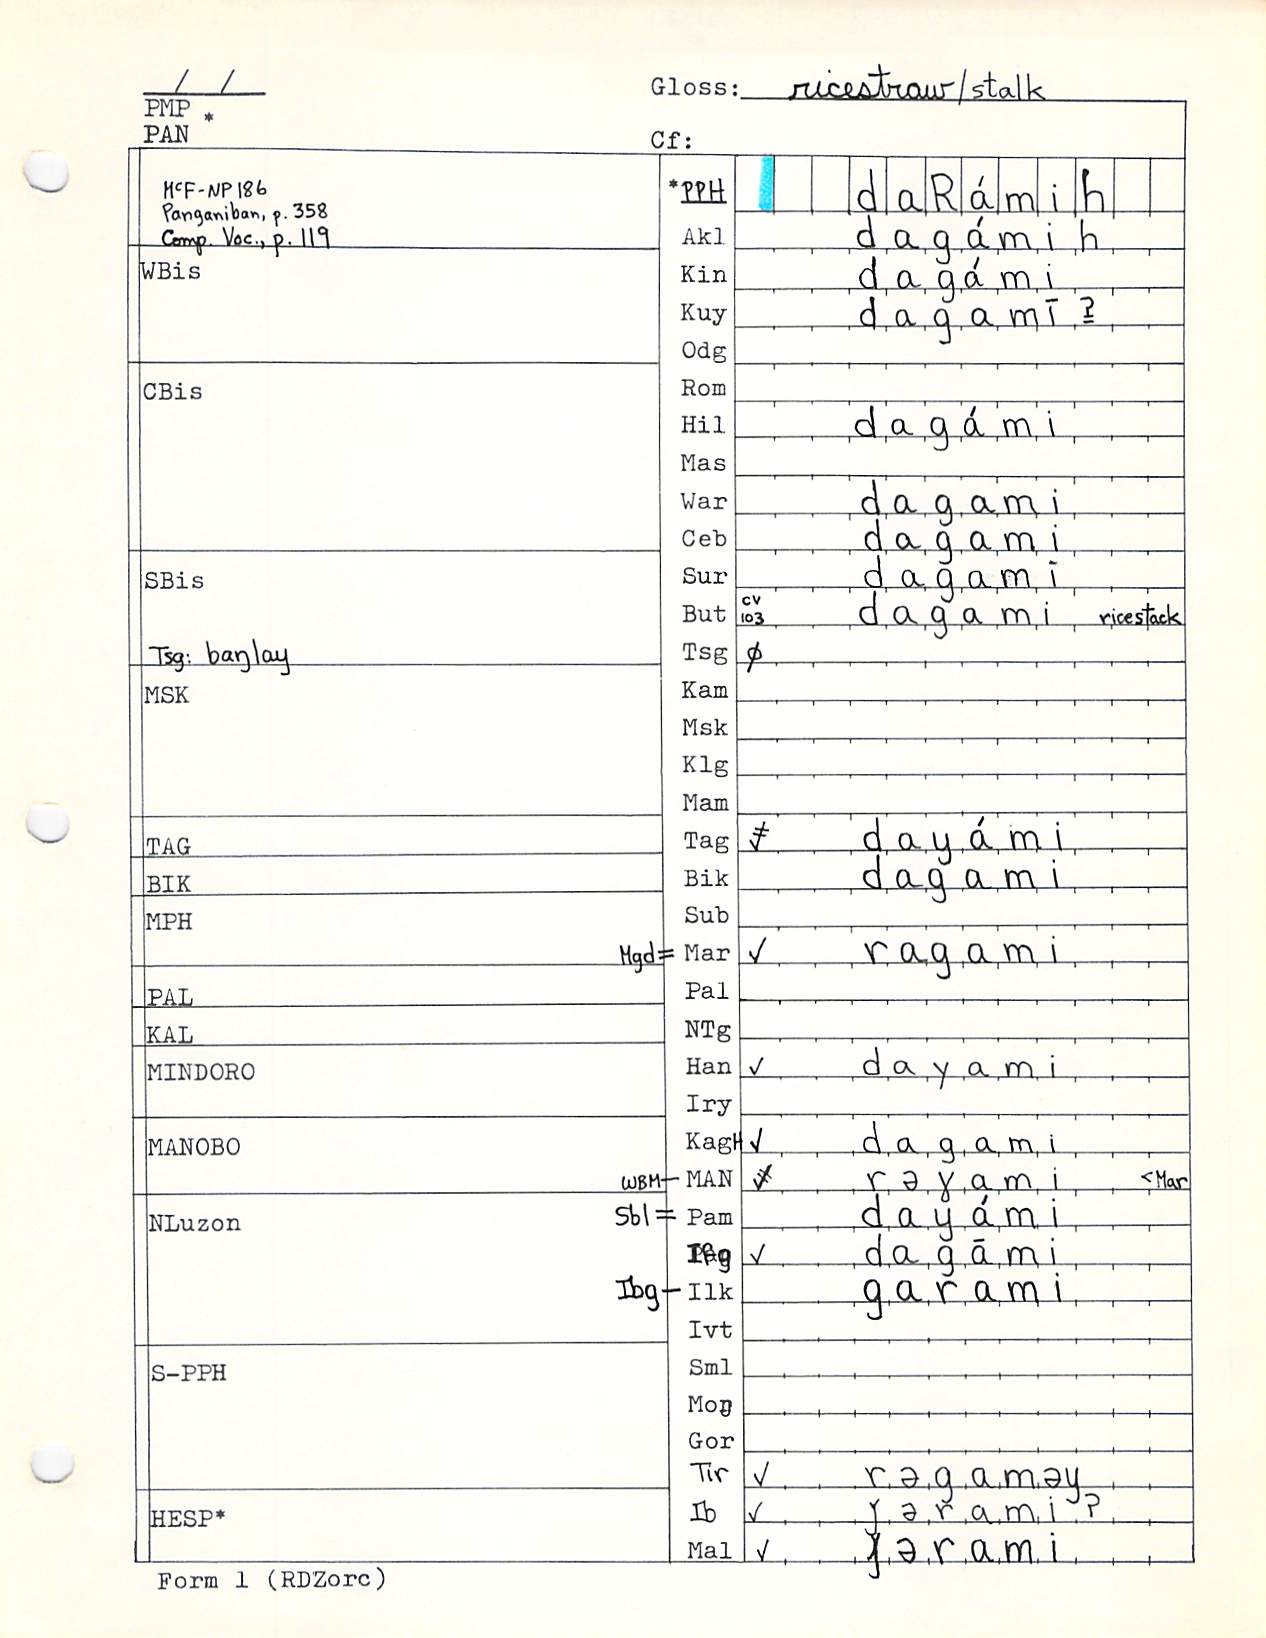 / /
Gloss: ricestraw/stalk
PMP *
PAN
Cf:
McF-NP 186
Panganiban, p. 358
Comp. Voc., p. 119
*PPH daRámih
Akl dagámih
WBis
Kin dagámi
Kuy dagamī ʔ
Odg
CBis
Rom
Hil dagámi
Mas
War dagami
Ceb dagami
SBis
Sur dagamī
But CV 103 dagami ricestack
Tsg: baŋlay
Tsg ∅
MSK
Kam
Msk
Klg
Mam
TAG
Tag ≠ dayámi
BIK
Bik dagami
MPH
Sub
Mgd= Mar ✓ ragami
PAL
Pal
KAL
NTg
MINDORO
Han ✓ dayami
Iry
MANOBO
KagH ✓ dagami
WBM— MAN rəɣami <Mar
NLuzon
Sbl= Pam dayámi
Ifg ✓ dagāmi
Ibg— Ilk garami
Ivt
S-PPH
Sml
Moŋ
Gor
Tir ✓ rəgaməy
HESP*
Ib ✓ ǰərami?
Mal ✓ ǰərami
Form 1 (RDZorc)